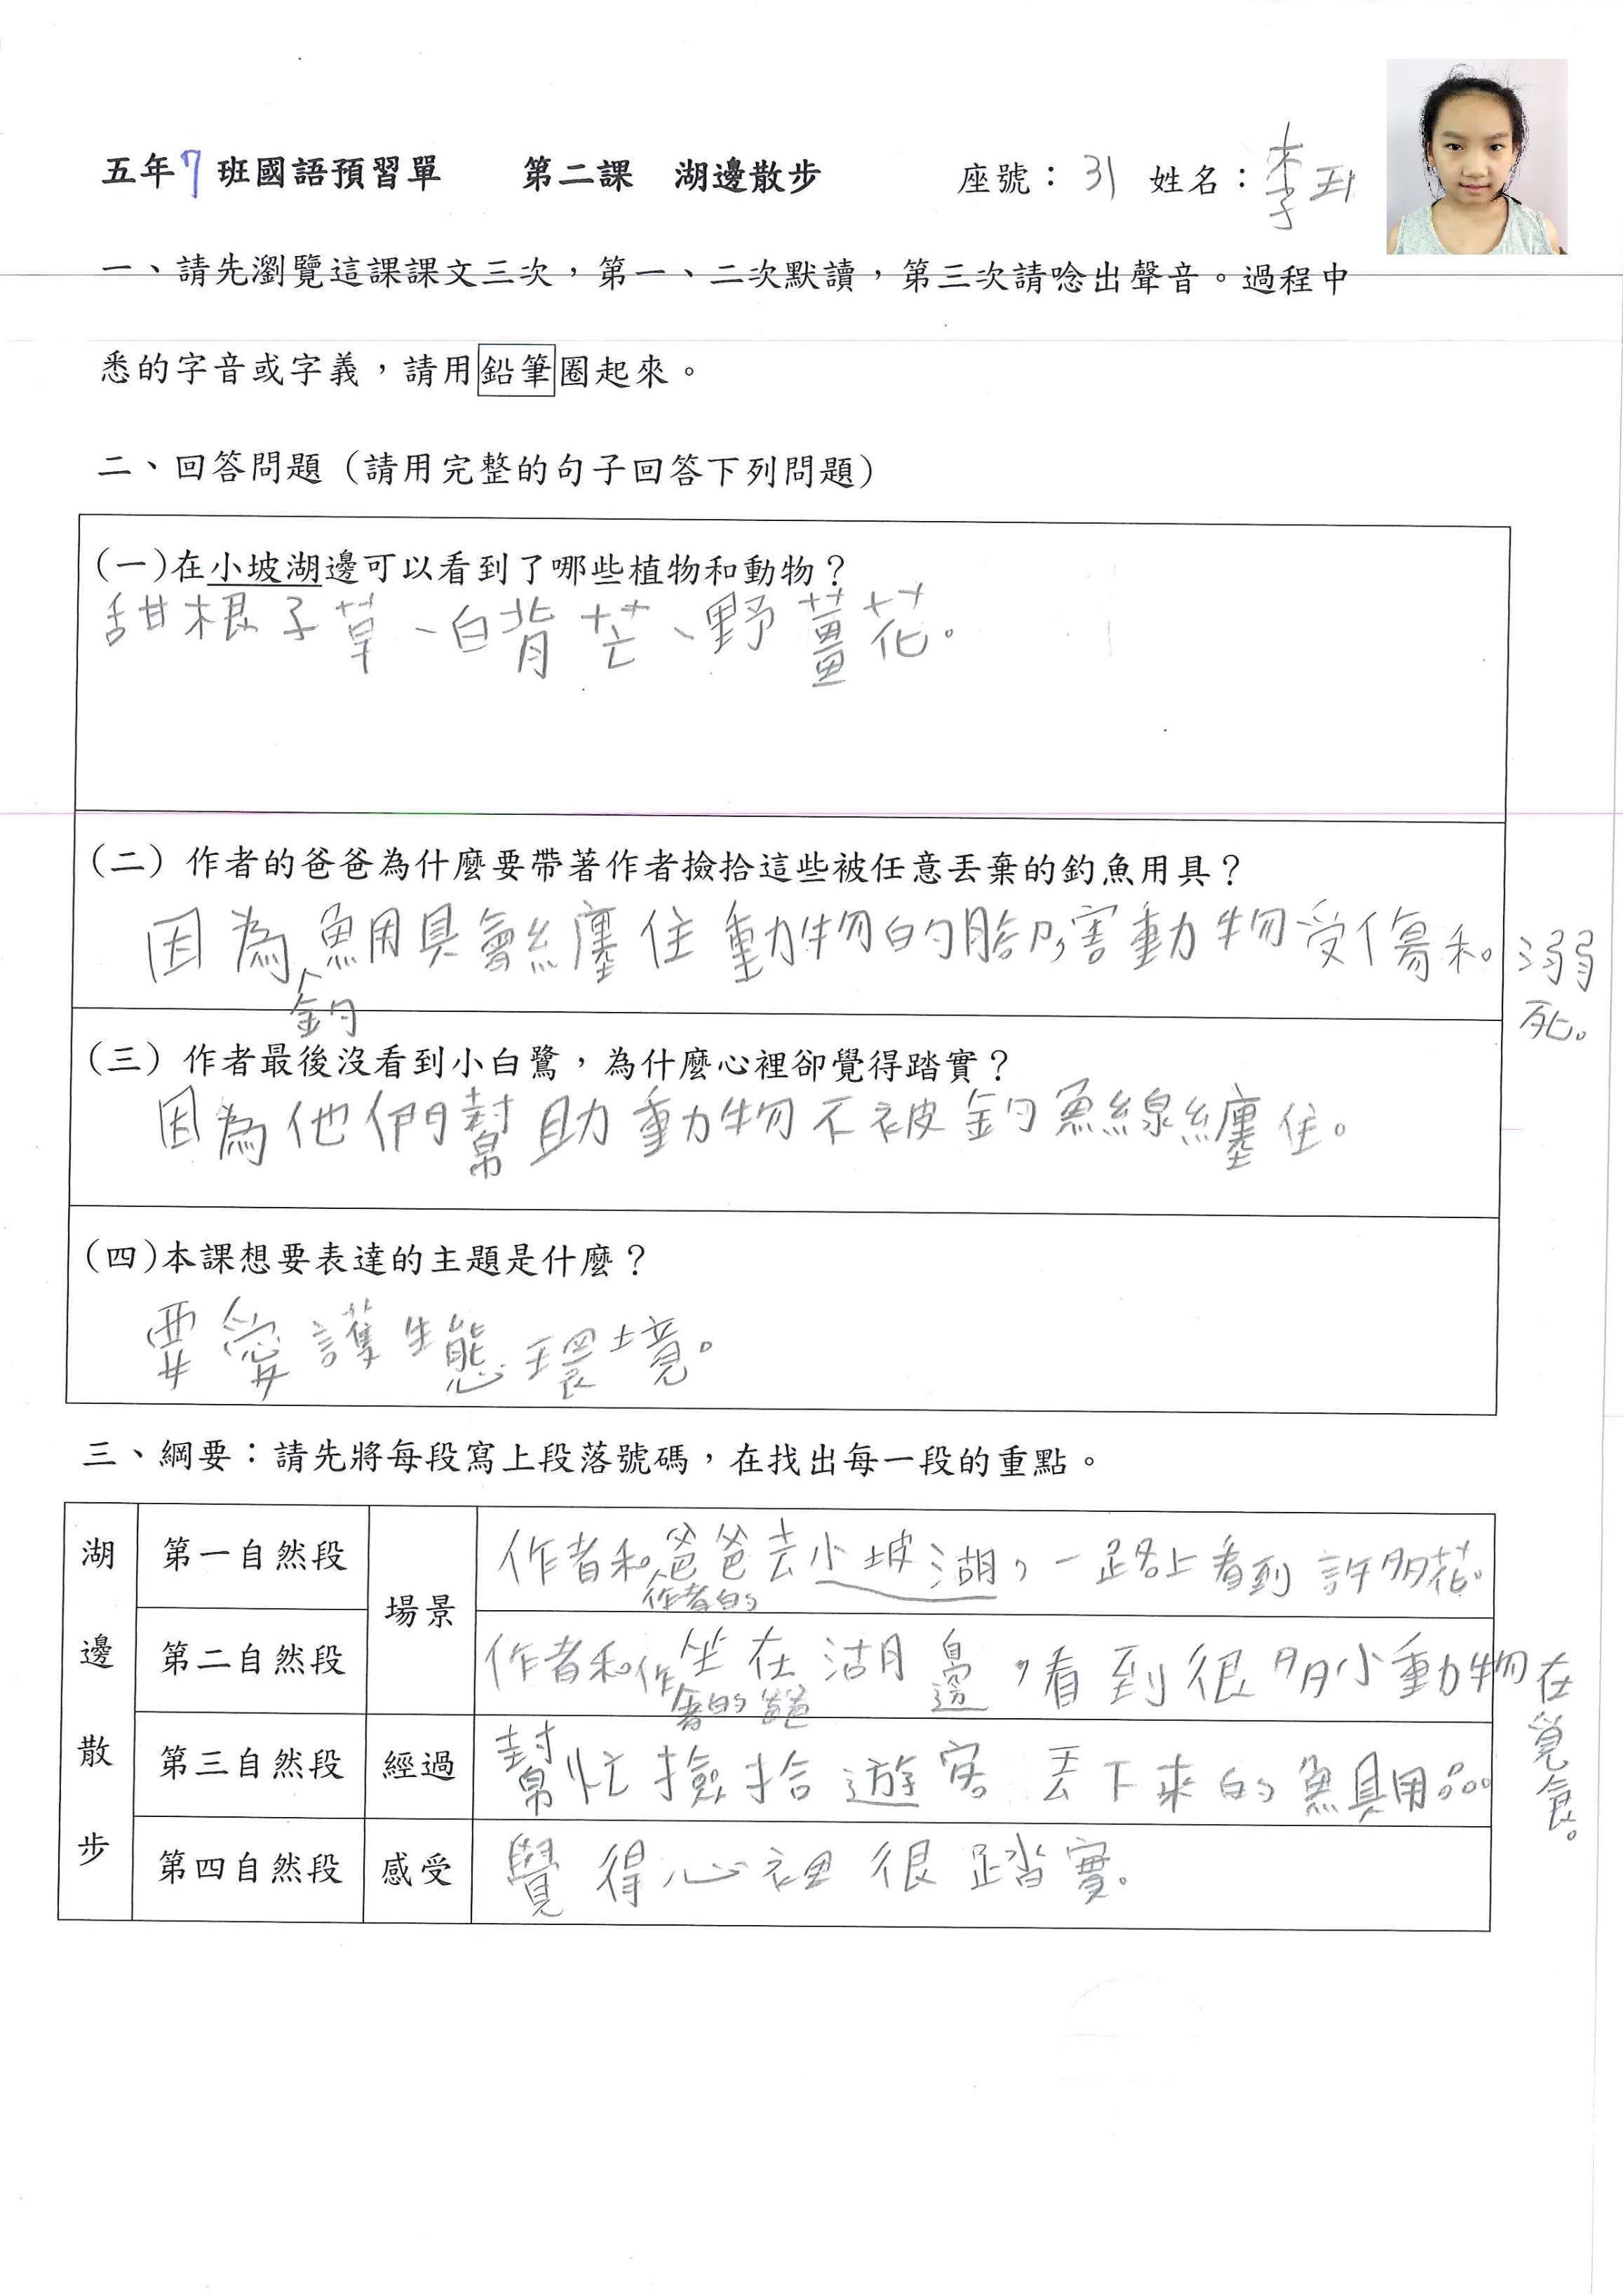 五年7班國語預習單 第二課 湖邊散步 座號：31 姓名：李
一、請先瀏覽這課課文三次，第一、二次默讀，第三次請唸出聲音。過程中
悉的字音或字義，請用鉛筆圈起來。
二、回答問題（請用完整的句子回答下列問題）
(一)在小坡湖邊可以看到了哪些植物和動物？
甜根子草、白背芒、野薑花。
（二）作者的爸爸為什麼要帶著作者撿拾這些被任意丟棄的釣魚用具？
因為釣魚用具會纏住動物的腳，害動物受傷和溺
死。
（三）作者最後沒看到小白鷺，為什麼心裡卻覺得踏實？
因為他們幫助動物不被釣魚線纏住。
(四)本課想要表達的主題是什麼？
要愛護生態環境。
三、綱要：請先將每段寫上段落號碼，在找出每一段的重點。
湖邊散步
第一自然段 場景 作者和作者的爸爸去小坡湖，一路上看到許多花。
第二自然段 作者和作者的爸爸坐在湖邊，看到很多小動物在
覓食。
第三自然段 經過 幫忙撿拾遊客丟下來的魚具用品。
第四自然段 感受 覺得心裡很踏實。